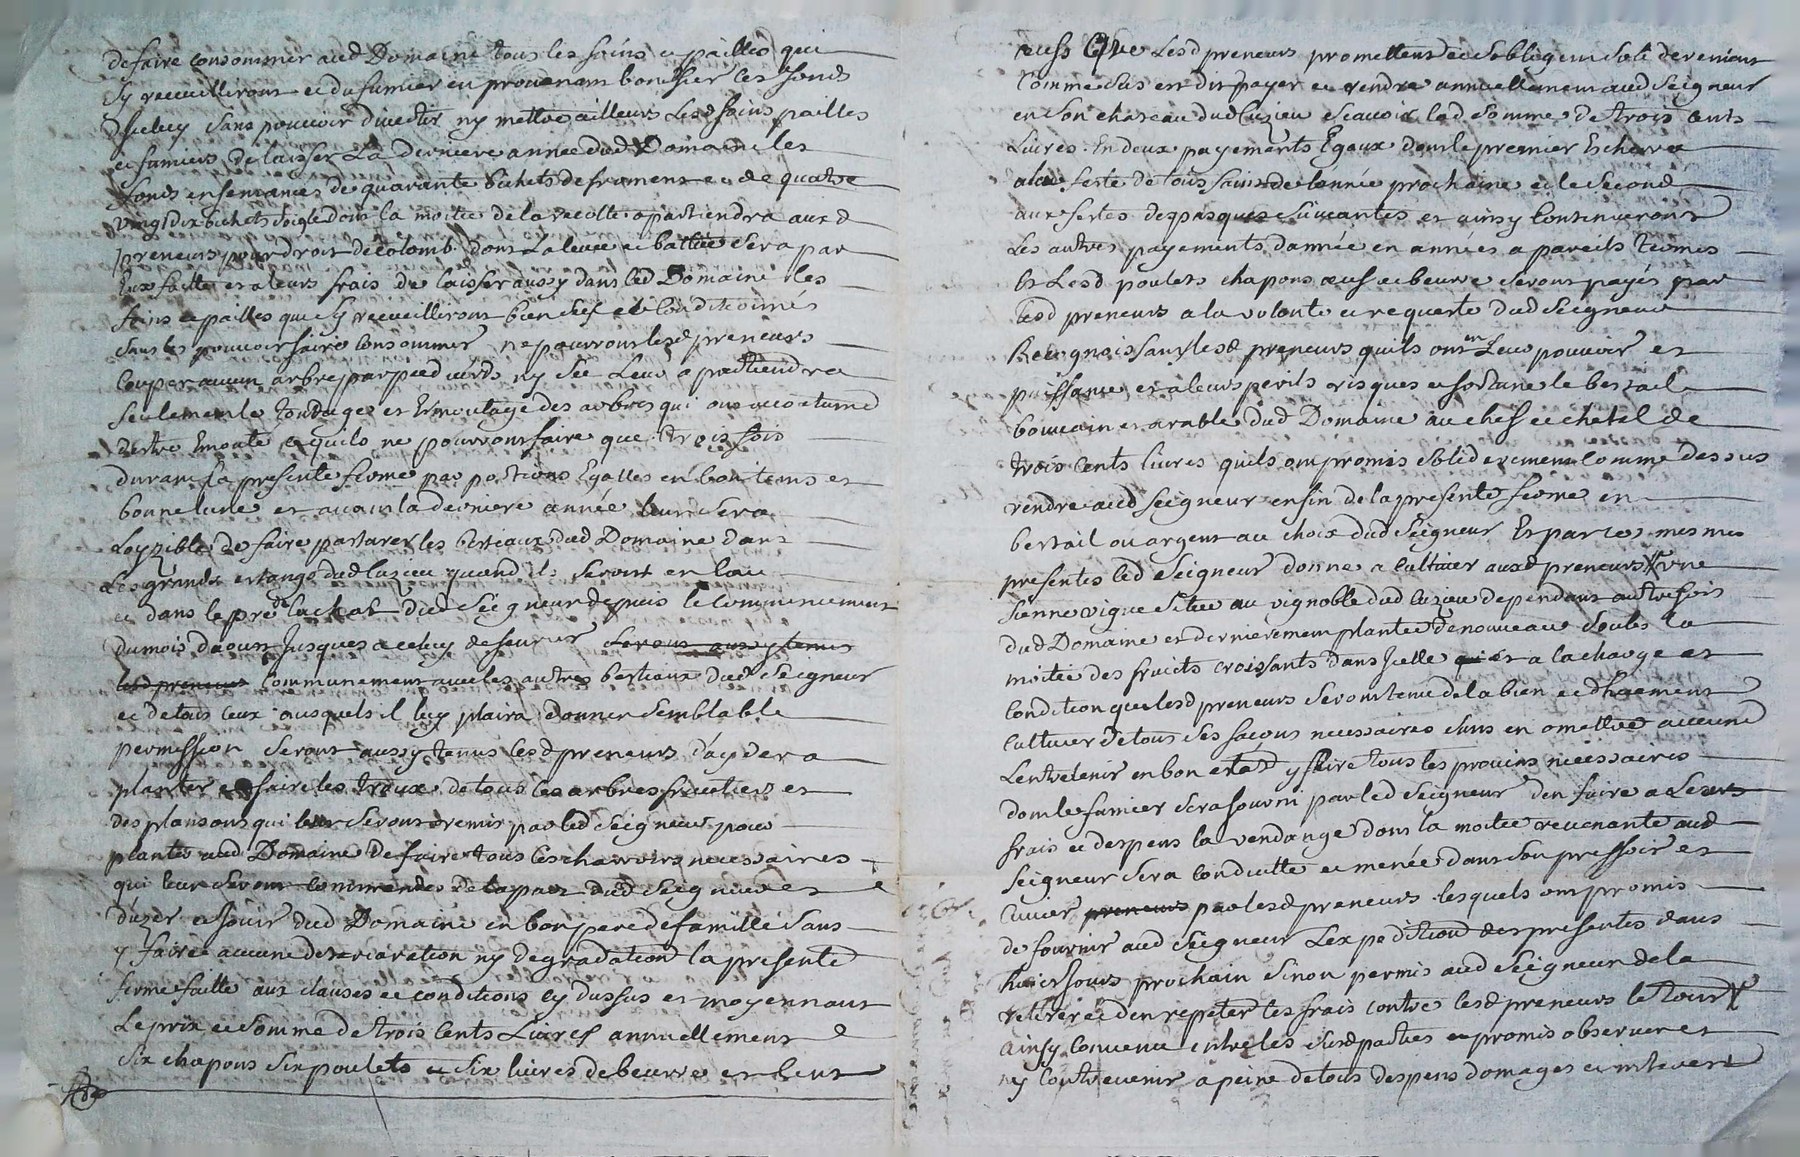 de faire consommer aud Domaine tous les foins et pailles qui
sy recueilliront et du fumier en provenant bonifier les fonds
diceluy sans pouvoir divertir ny mettre ailleurs Lesd foins pailles
et fumiers de laisser La derniere année dud Domaine les
fonds ensemancés de quarante bichets de froment et de quatre
vingt dix bichets soigle dont la moitié de la recolte apartiendra aux d
preneurs pour droit de colomb. dont La levée et battue sera par
Eux faitte et a leurs frais de laisser aussy dans led Domaine les
foins et pailles qui sy recueilliront bien secs et conditionnés
sans les pouvoir faire consommer ne pourront lesd preneurs
Couper aucun arbre par pied verds ny sec Leur apartiendra
seulement le tondage et Emoutage des arbres qui ont accoutumé
destre Emouté et quils ne pourront faire que trois fois
durant la presente ferme par portions Egalles en bon tems et
bonne lune et avant la derniere année leur sera
Loyzible de faire paturer les bestiaux dud Domaine dans
Les grands estangs dud Luzieu quand ils seront en l'au
et dans le pré de lachat dud Seigneur depuis le Commencement
du mois daoust Jusques a celuy de feuvrier seront aussy tenus
lesd preneurs Communement avec les autres bestiaux dud Seigneur
et de tous ceux ausquels il luy plaira donner semblable
permission seront aussy tenus lesd preneurs d'ayder a
planter et faire les troux de tous les arbres fruitiers et
des plansons qui leur seront remis par led Seigneur pour
planter aud Domaine de faire tous les charrois necessaires
qui leur seront commendés de la part dud Seigneur et
d'uzer et Jouir dud Domaine en bon pere de famille sans
y faire aucune deterioration ny degradation la presente
ferme faitte aux clauses et conditions cy dessus et moyennant
Le prix et somme de trois Cents Livres annuellement
six chapons six poulets et six livres de beurre et Cent
œufs Que Lesd preneurs promettent et sobligent soli derement
Comme dus est dit payer et rendre annuellement aud Seigneur
en son chateau dud Luzieu scavoir lad somme de trois Cents
Livres En deux payements Egaux dont le premier Echerra
a la feste de tous saints de lannée prochaine et le second
aux festes de pasques suivantes et ainsy Continueront
Les autres payements dannée en années a pareils termes
Et Lesd poulets chapons œufs et beurre seront payés par
lesd preneurs a la volonté et requeste dud Seigneur
Recognoissants lesd preneurs quils ont en Leur pouvoir et
puissance et a leurs perils risques et fortune le bestail
bouvain et arable dud Domaine au chef et chetel de
trois Cents livres quils ont promis soliderement Comme dessus
rendre aud Seigneur en fin de la presente ferme en
bestail ou argent au choix dud Seigneur Et par ces mesmes
presentes led Seigneur donne a cultiver auxd preneurs Une
sienne vigne située au vignoble dud Luzieu dependant autrefois
dud Domaine et dernierement plantée de nouveau soubs la
moitié des fruits croissants dans Jcelle et a la charge et
Condition que lesd preneurs seront tenu de la bien et dhuement
Cultiver de tous ses façons necessaires sans en omettre aucune
Lentretenir en bon etat y faire tous les provins necessaires
dont le fumier sera fourni par led Seigneur d'en faire a Leurs
frais et despens la vendange dont la moitié revenante aud
Seigneur sera conduitte et menée dans son pressoir et
Cuvier preneurs par lesd preneurs lesquels ont promis
de fournir aud Seigneur L'expedition des presentes dans
huict Jours prochain sinon permis aud Seigneur de la
retirer et d'en repeter les frais contre lesd preneurs le tout
ainsy Convenu entre les susd parties et promis observer et
ny Contrevenir a peine de tous despens domages et interests